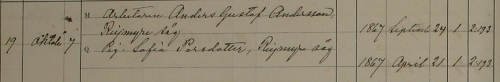 " Arbetaren Anders Gustaf Andersson,
Rejmyre säg 1867 Septemb 24 1 2.193
19 Oktob 7 " Pig. Sofia Persdotter, Rejmyre säg
1867 April 21 1 2.193